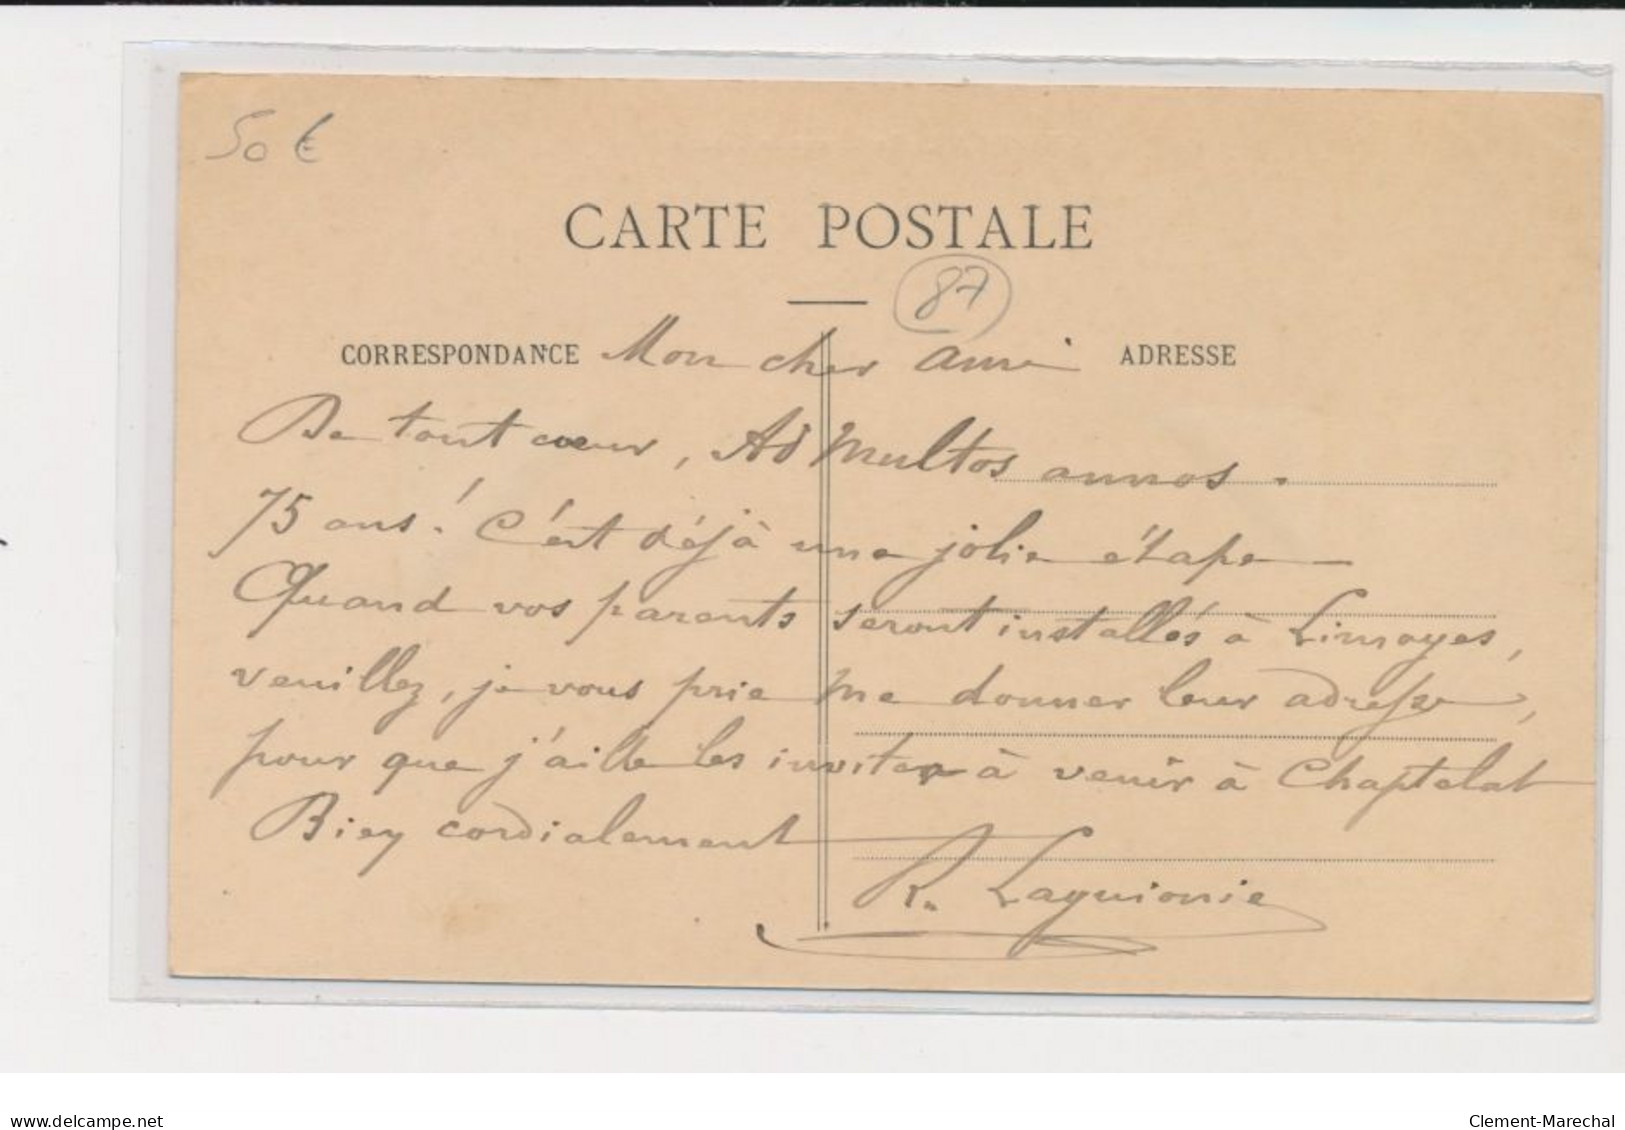 50 €
CARTE POSTALE
87
CORRESPONDANCE Mon cher ami ADRESSE
De tout cœur, Ad Multos annos.
75 ans! C'est déjà une jolie étape —
Quand vos parents seront installés à Limoges,
veuillez, je vous prie me donner leur adresse,
pour que j'aille les inviter à venir à Chaptelat
Bien cordialement
R. Laguionie
delcampe.net
Clement-Marechal